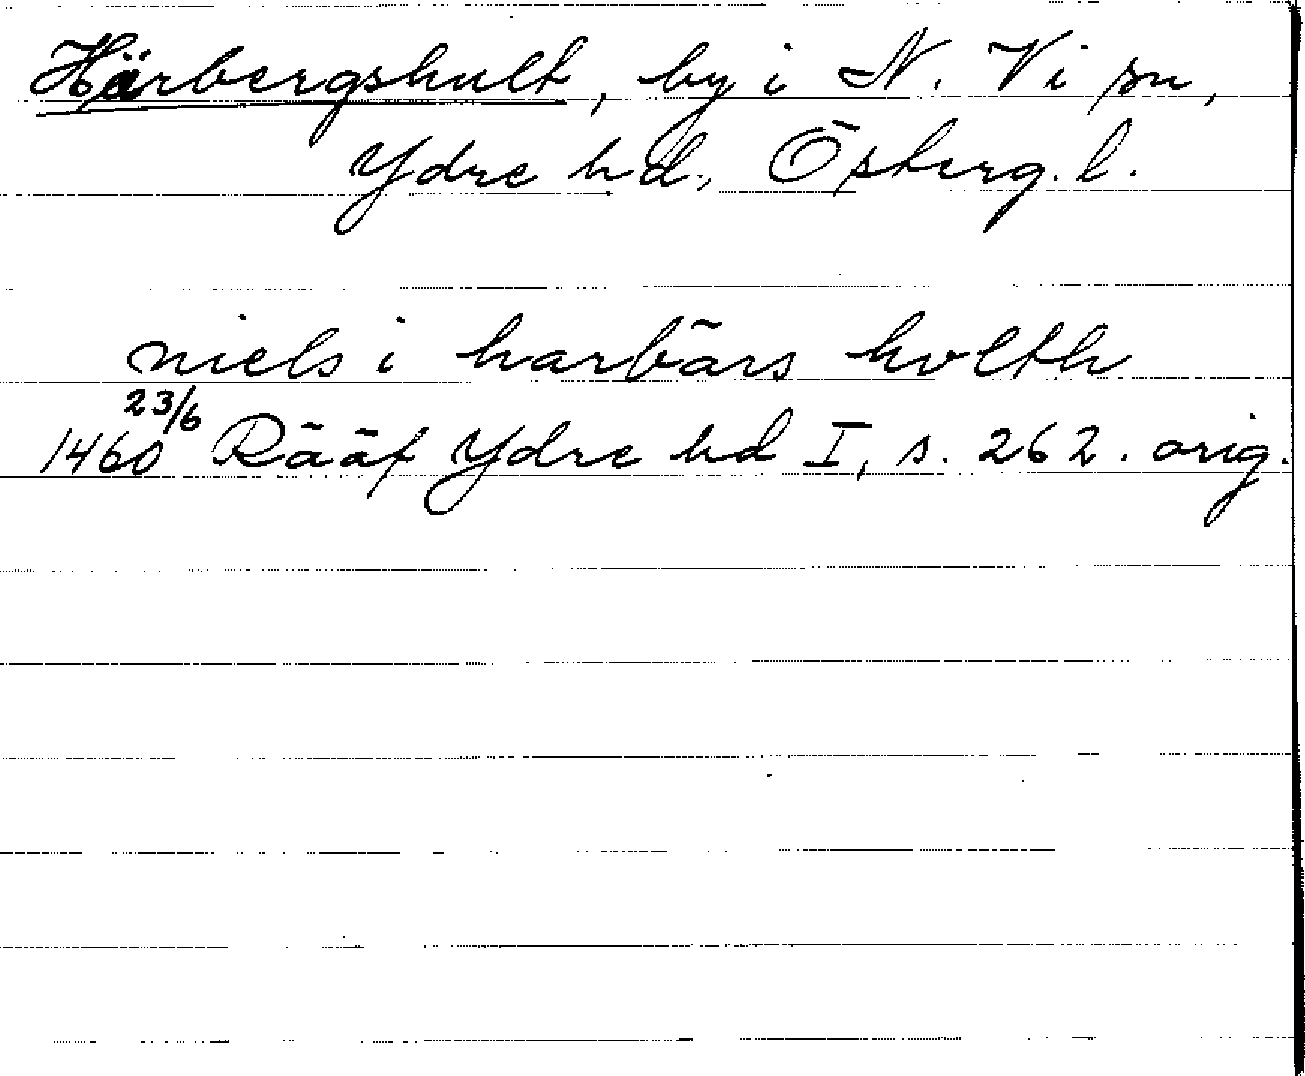 Härbergshult, by i N. Vi sn,
Ydre hd., Österg. l.
niels i harbärs hvlth
23/6
1460 Rääf Ydre hd I, s. 262. orig.